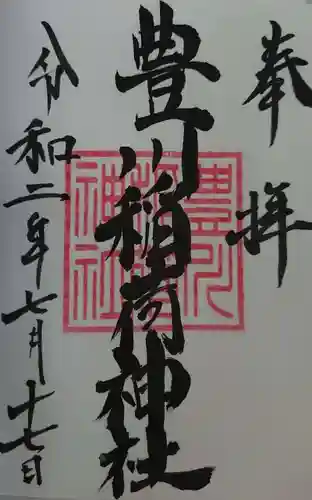 奉拝
豊川稲荷神社
令和二年七月十七日
豊川
稲荷
神社